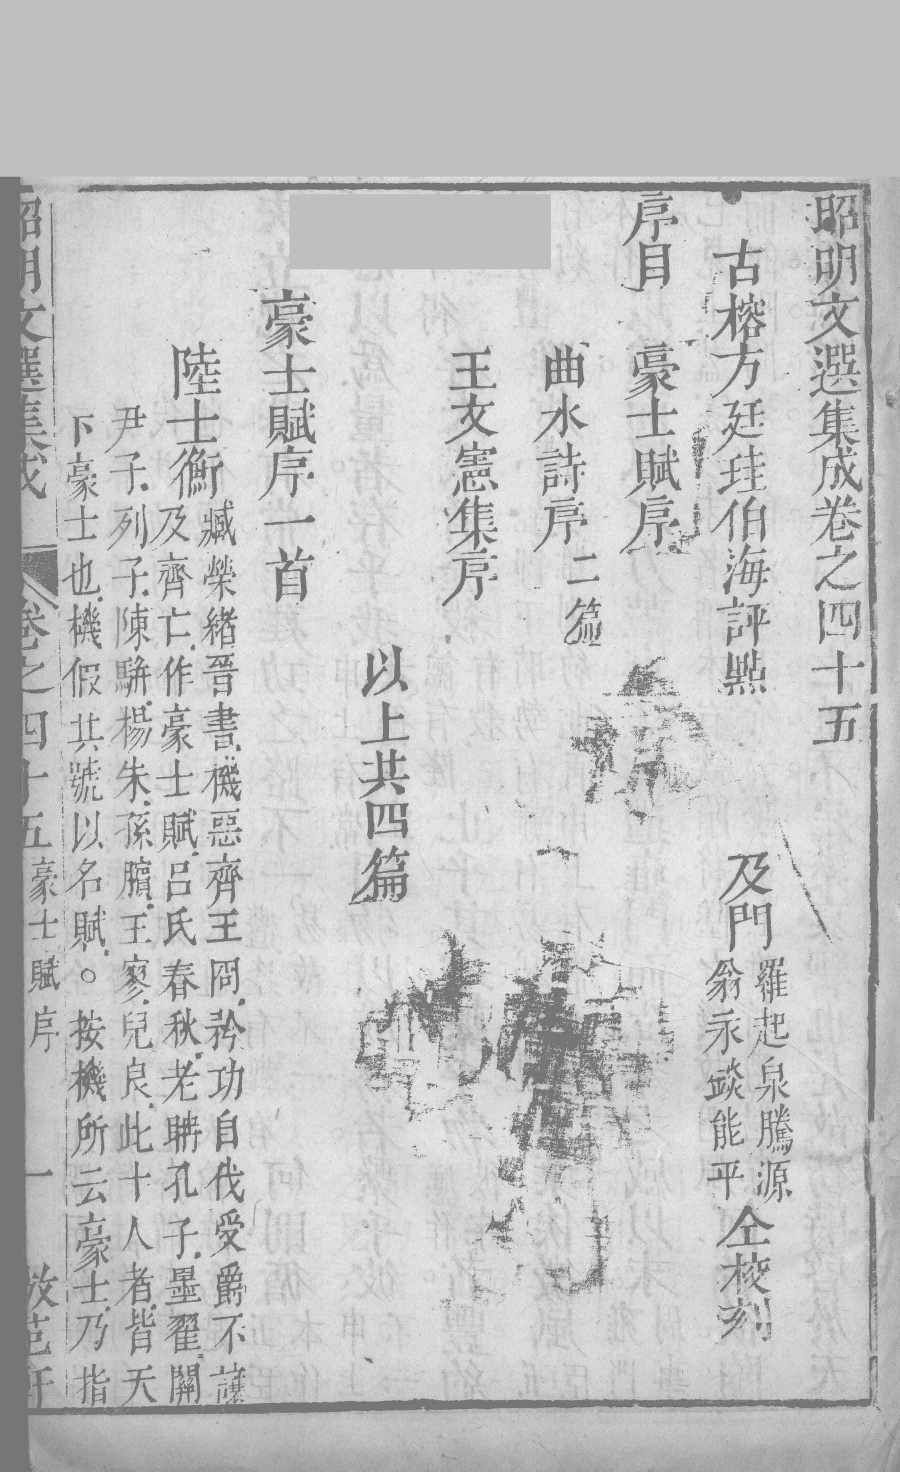 昭明文選集成卷之四十五
古榕方廷珪伯海評點
及門
羅起泉騰源
翁永錟能平
仝校刻
序目
豪士賦序
曲水詩序二篇
王文憲集序
以上共四篇
豪士賦序一首
陸士衡
臧榮緒晉書機惡齊王冏矜功自伐受爵不讓
及齊亡作豪士賦呂氏春秋老聃孔子墨翟關
尹子列子陳駢楊朱孫臏王寥兒良此十人者皆天
下豪士也機假其號以名賦○按機所云豪士乃指
昭明文選集成
卷之四十五
豪士賦序
一